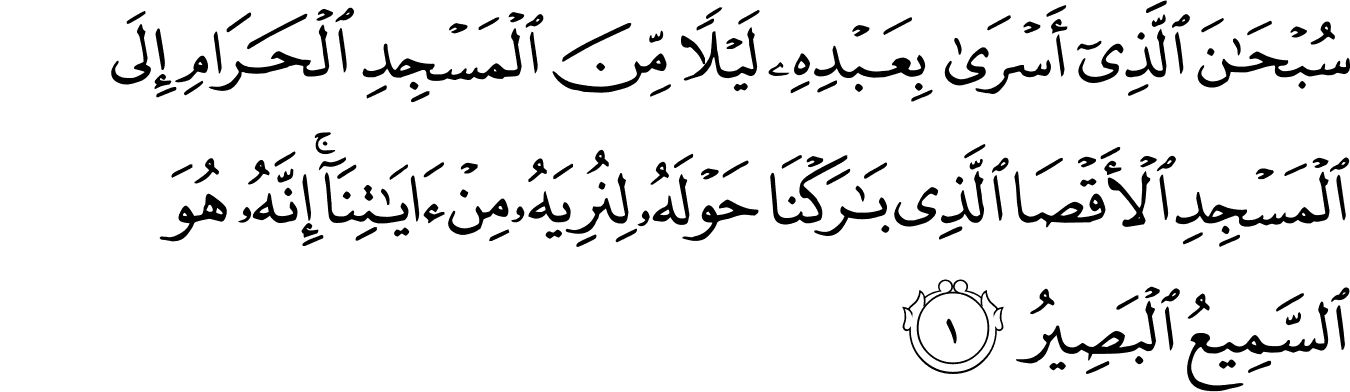 سُبْحَـٰنَ ٱلَّذِىٓ أَسْرَىٰ بِعَبْدِهِۦ لَيْلًا مِّنَ ٱلْمَسْجِدِ ٱلْحَرَامِ إِلَى
ٱلْمَسْجِدِ ٱلْأَقْصَا ٱلَّذِى بَـٰرَكْنَا حَوْلَهُۥ لِنُرِيَهُۥ مِنْ ءَايَـٰتِنَآ ۚ إِنَّهُۥ هُوَ
ٱلسَّمِيعُ ٱلْبَصِيرُ ١